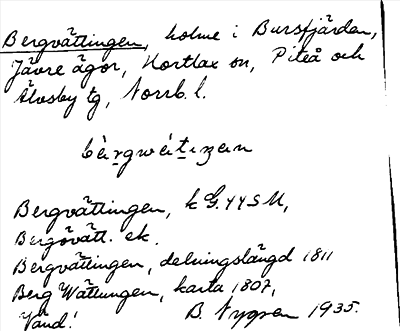 Bergvättingen, holme i Bursfjärden,
Jävre ägor, Hortlax sn, Piteå och
Älvsby tg, Norrb. l.
Bergvättingen, k G.44SM,
ek.
Bergvättingen, delningslängd 1811
Berg Wättungen, karta 1807,
Vänd! B. Nygren 1935.